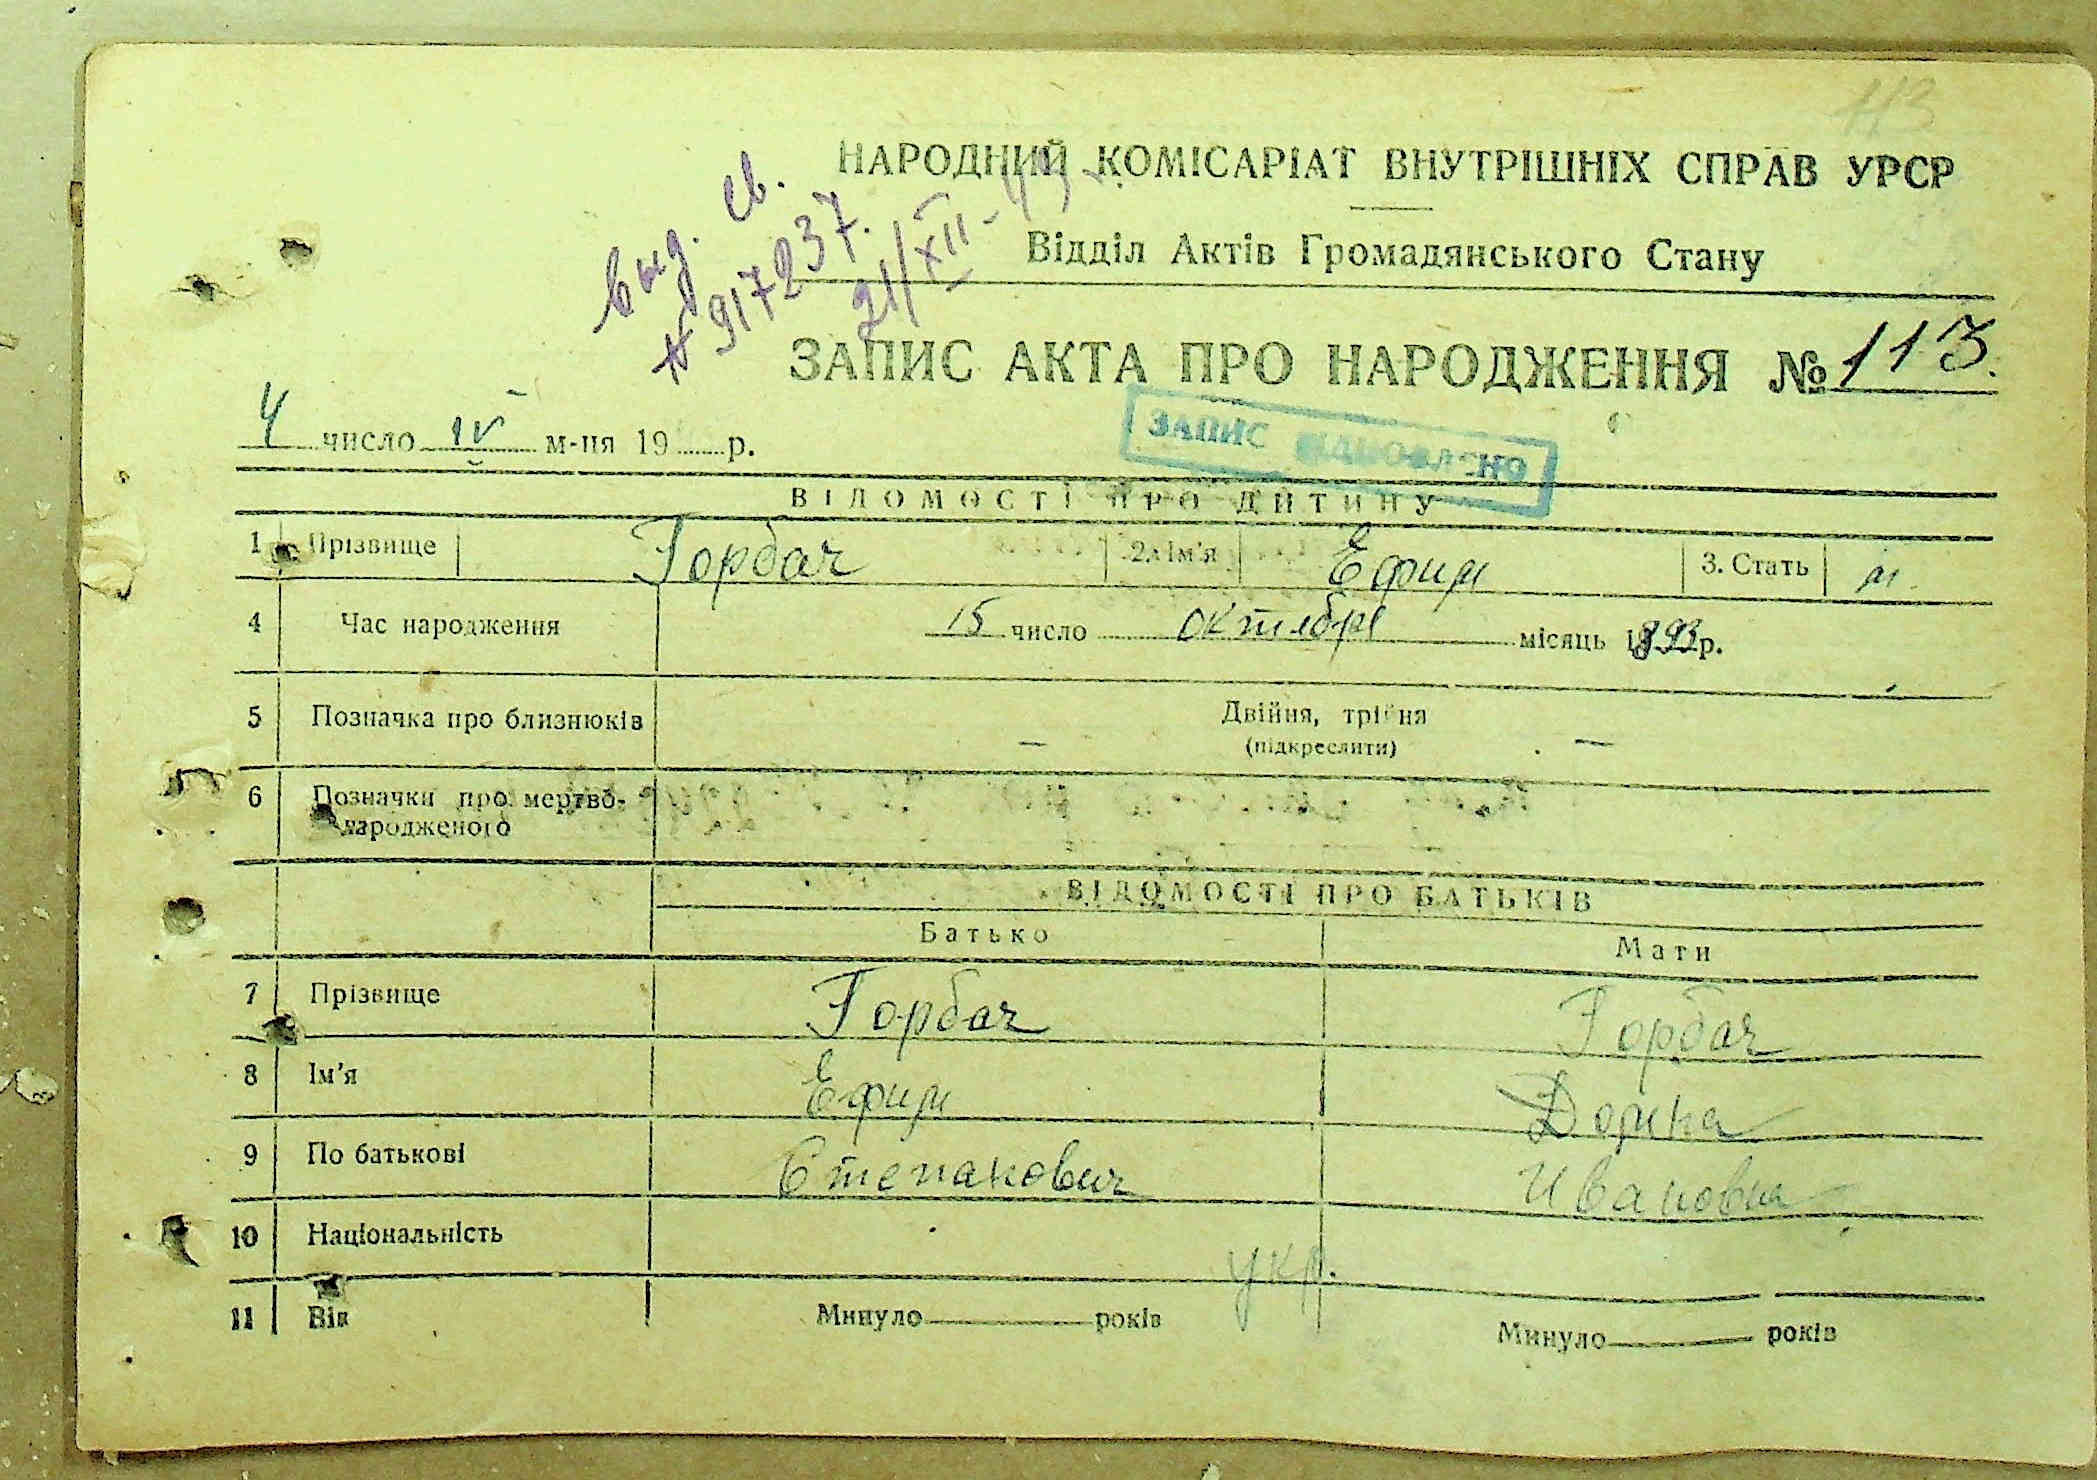 113
НАРОДНИЙ КОМІСАРІАТ ВНУТРІШНІХ СПРАВ УРСР
Відділ Актів Громадянського Стану
Выд. св.
№ 917237.
21/XII-
ЗАПИС АКТА ПРО НАРОДЖЕННЯ № 113.
4 число IV м-ця 19 р.
ЗАПИС ВІДНОВЛЕНО
ВІДОМОСТІ ПРО ДИТИНУ
1 Прізвище Горбач 2. Ім'я Ефим 3. Стать м.
4 Час народження 15 число октября місяць 1893 р.
5 Позначка про близнюків — Двійня, трійня —
(підкреслити)
6 Позначки про мертво-
народженого
ВІДОМОСТІ ПРО БАТЬКІВ
Батько Мати
7 Прізвище Горбач Горбач
8 Ім'я Ефим Домна
9 По батькові Степанович Ивановна
10 Національність укр.
11 Вік Минуло років Минуло років